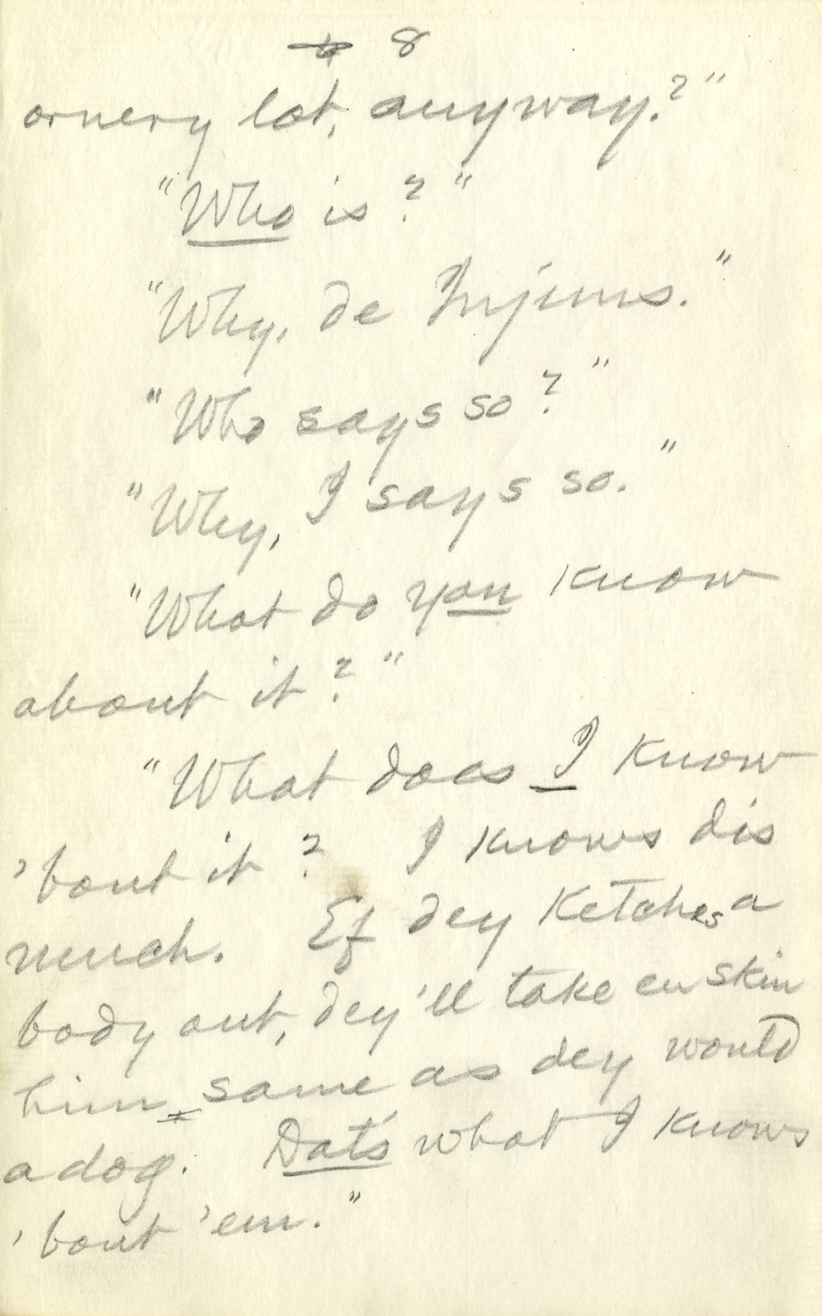 8
ornery lot, anyway?"
"Who is?"
"Why, de Injuns."
"Who says so?"
"Why, I says so."
"What do you know
about it?"
"What does I know
'bout it? I knows dis
much. Ef dey ketches a
body out, dey'll take en skin
him same as dey would
a dog. Dat's what I knows
'bout 'em."